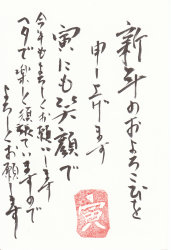 新年のおよろこびを
申し上げます
寅にも笑顔で
今年もよろしくお願いします
ヘタで楽しく頑張っていますので
よろしくお願いします
寅